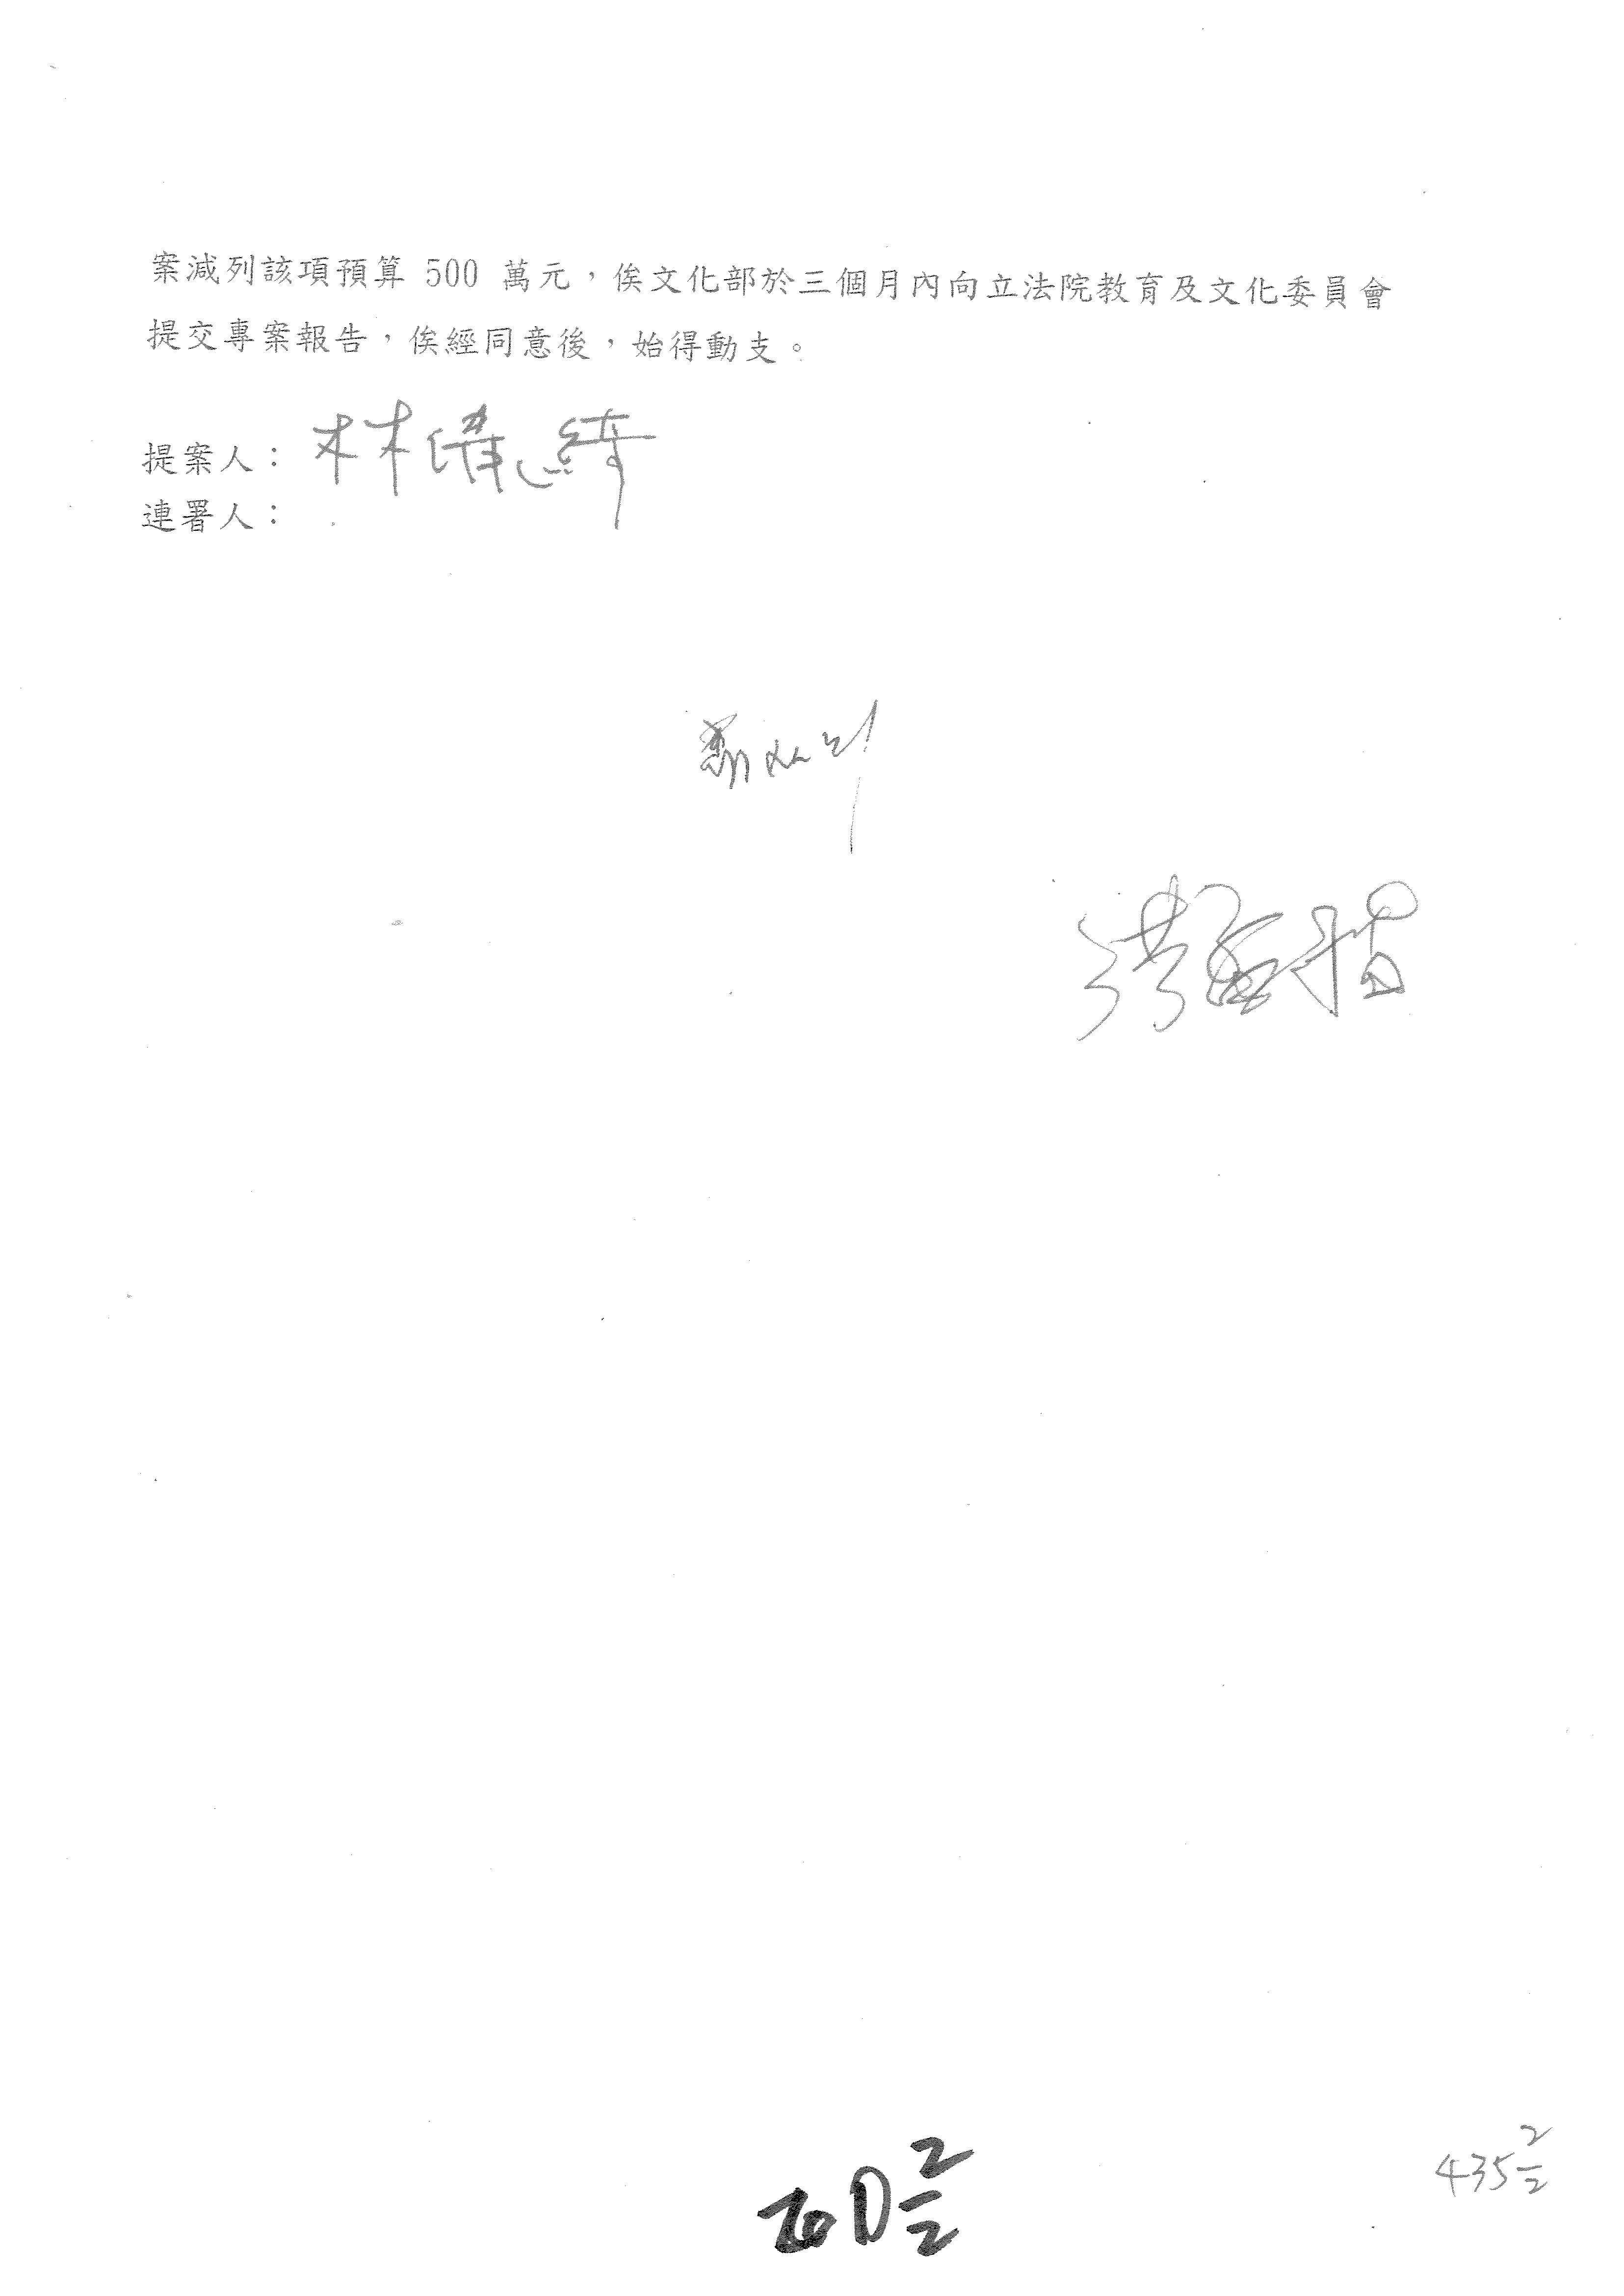 案減列該項預算 500 萬元，俟文化部於三個月內向立法院教育及文化委員會
提交專案報告，俟經同意後，始得動支。
提案人：林
連署人：
435 2/2